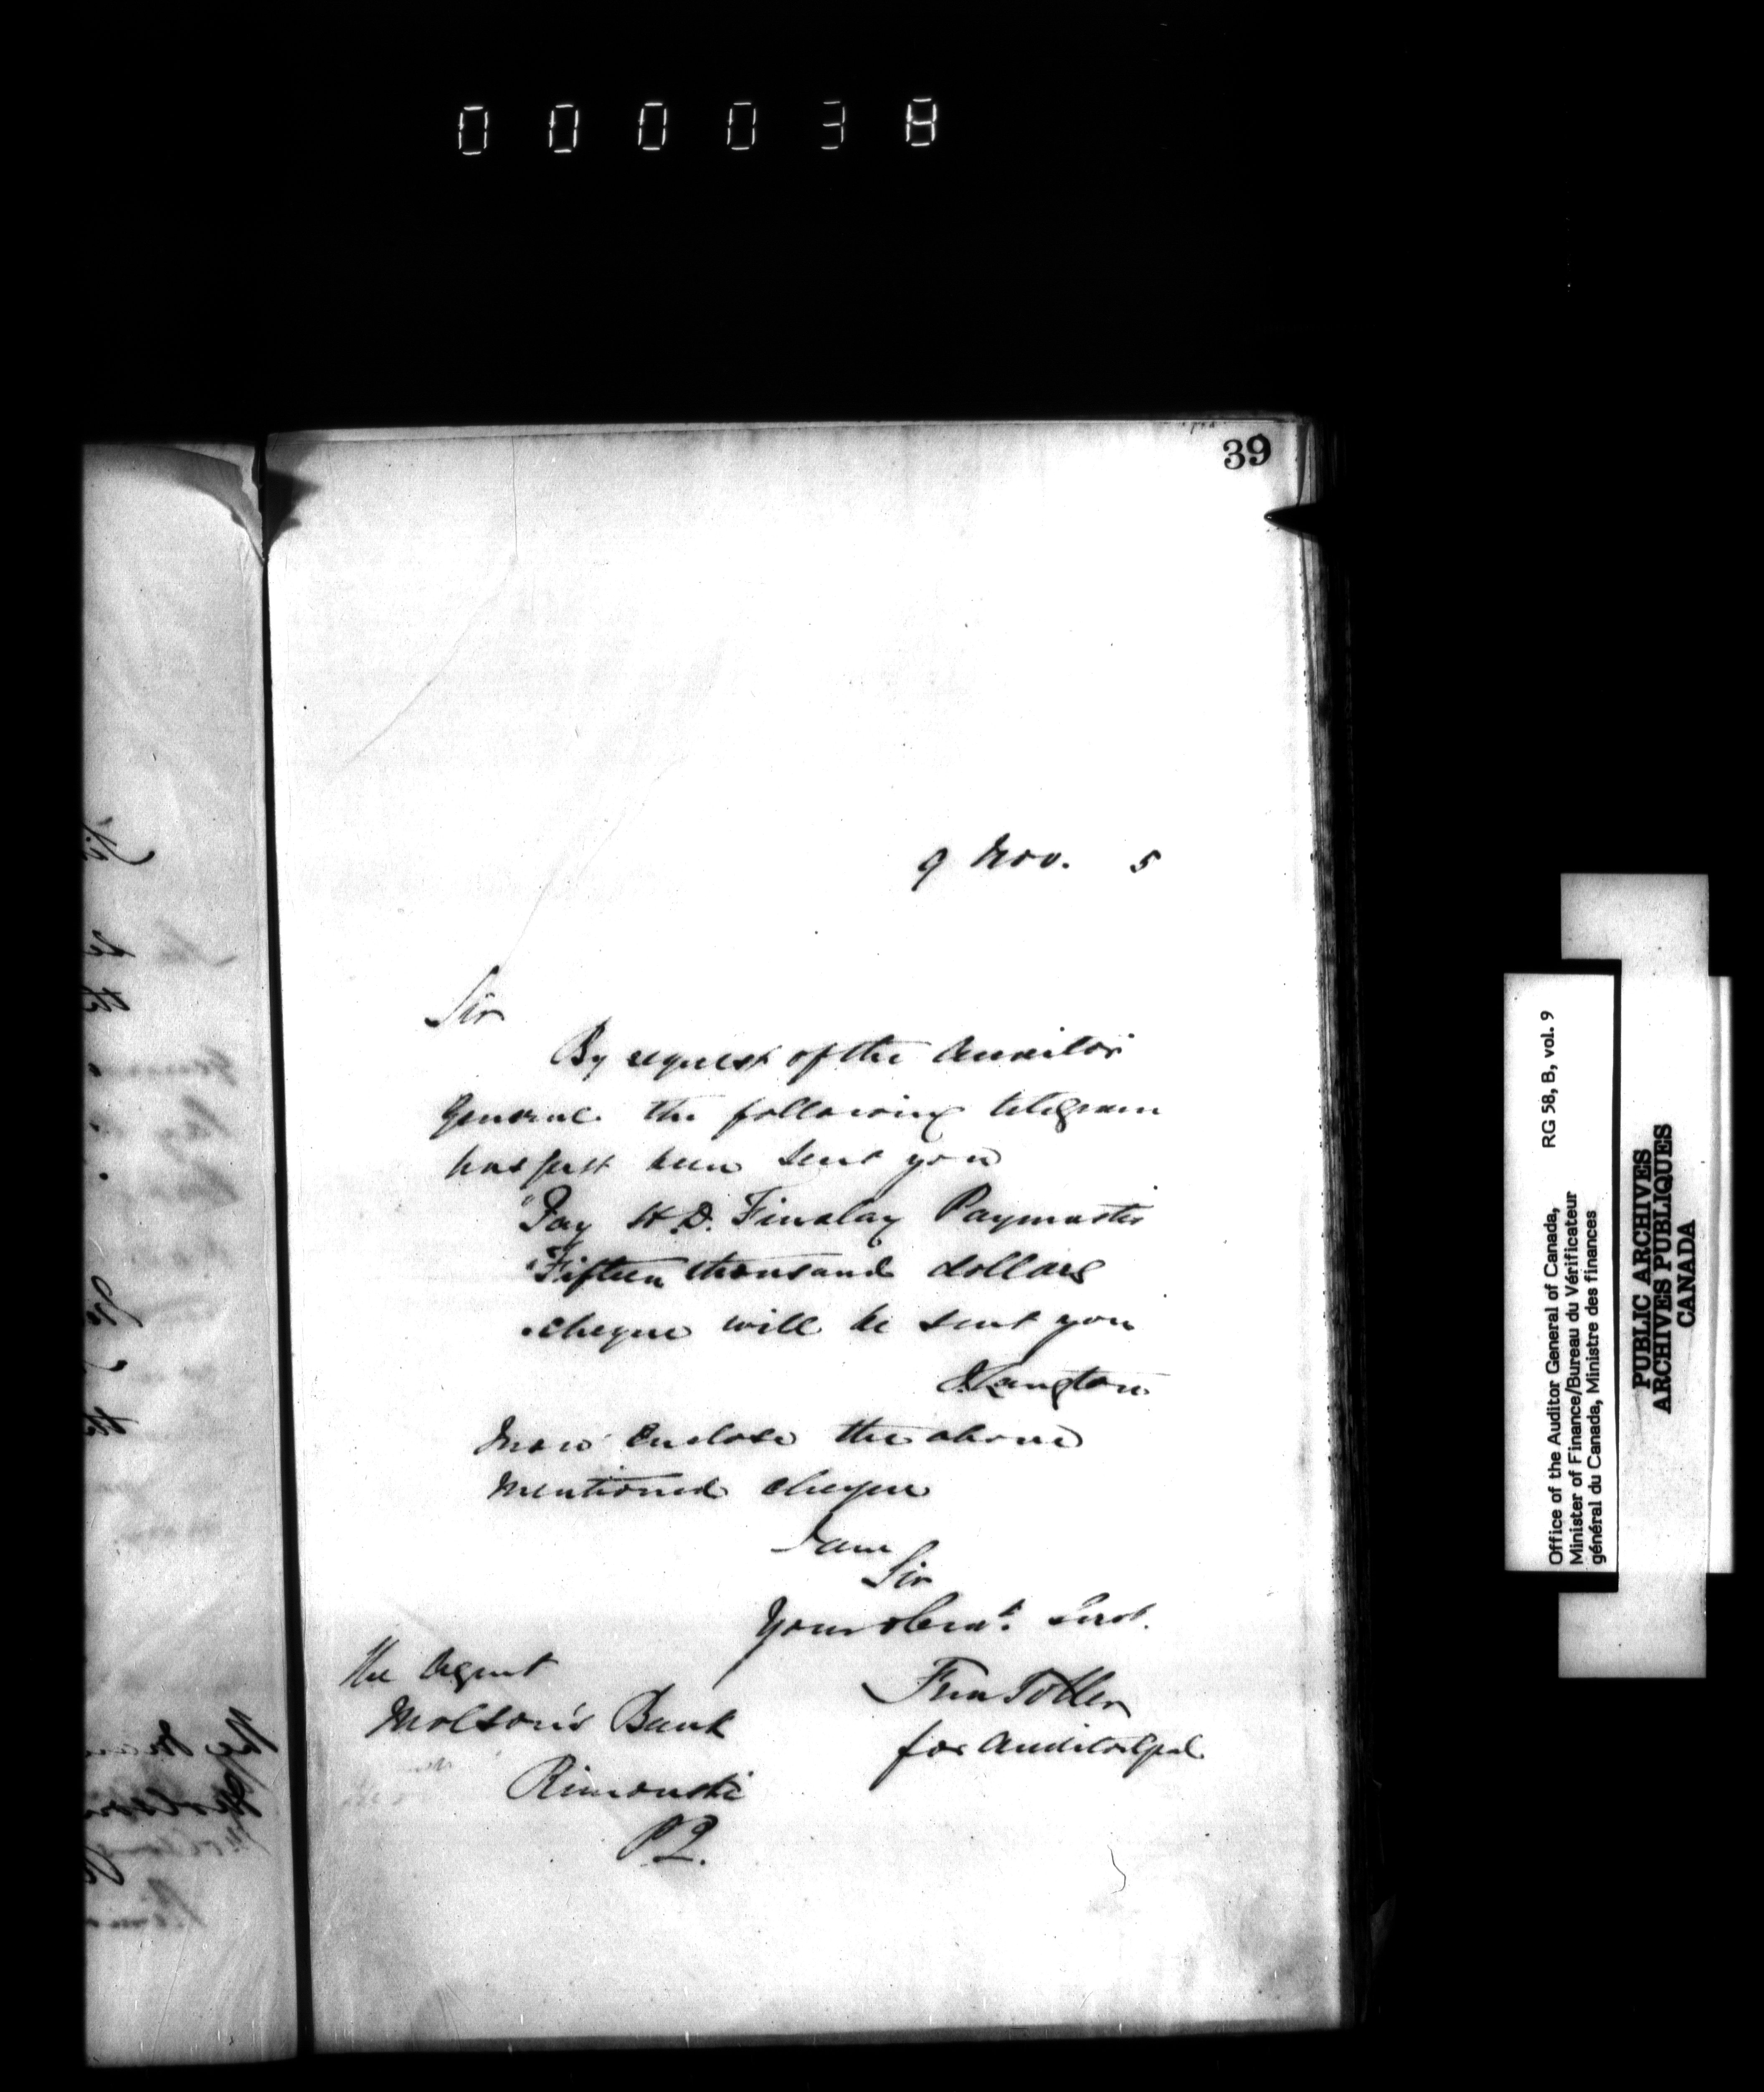 000038
39
9 Nov. 5
Sir
By request of the Auditor
General the following telegram
has just been sent you
"Pay H. D. Finalay Paymaster
"Fifteen thousand dollars
"cheque will be sent you
J Langton
I now enclose the above
mentioned cheque
I am
Sir
Your obedt. servt.
The Agent
Molson's Bank
Rimouski
P.Q.
Toller
for Auditor Genl
Office of the Auditor General of Canada, RG 58, B, vol. 9
Minister of Finance/Bureau du Vérificateur
général du Canada, Ministre des finances
PUBLIC ARCHIVES
ARCHIVES PUBLIQUES
CANADA